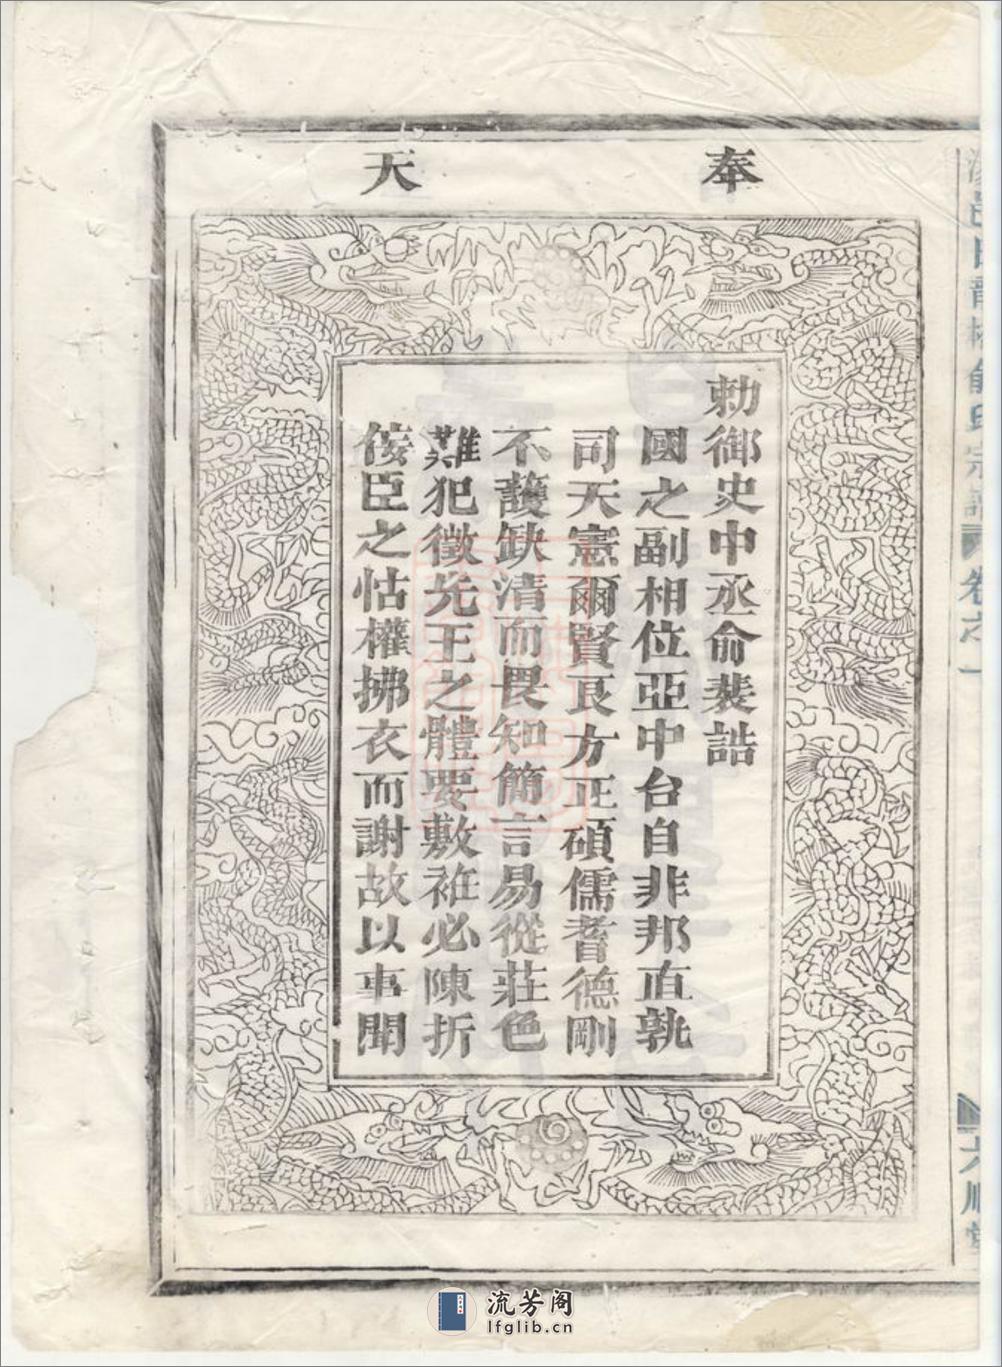 奉
天
勅御史中丞俞裴誥
國之副相位亞中台自非邦直孰
司天憲爾賢良方正碩儒耆德剛
不護缺清而畏知簡言易從莊色
難犯徵先王之體要敷袵必陳折
佞臣之怙權拂衣而謝故以事聞
俞氏宗譜
卷之一
六順堂
流芳阁
lfglib.cn